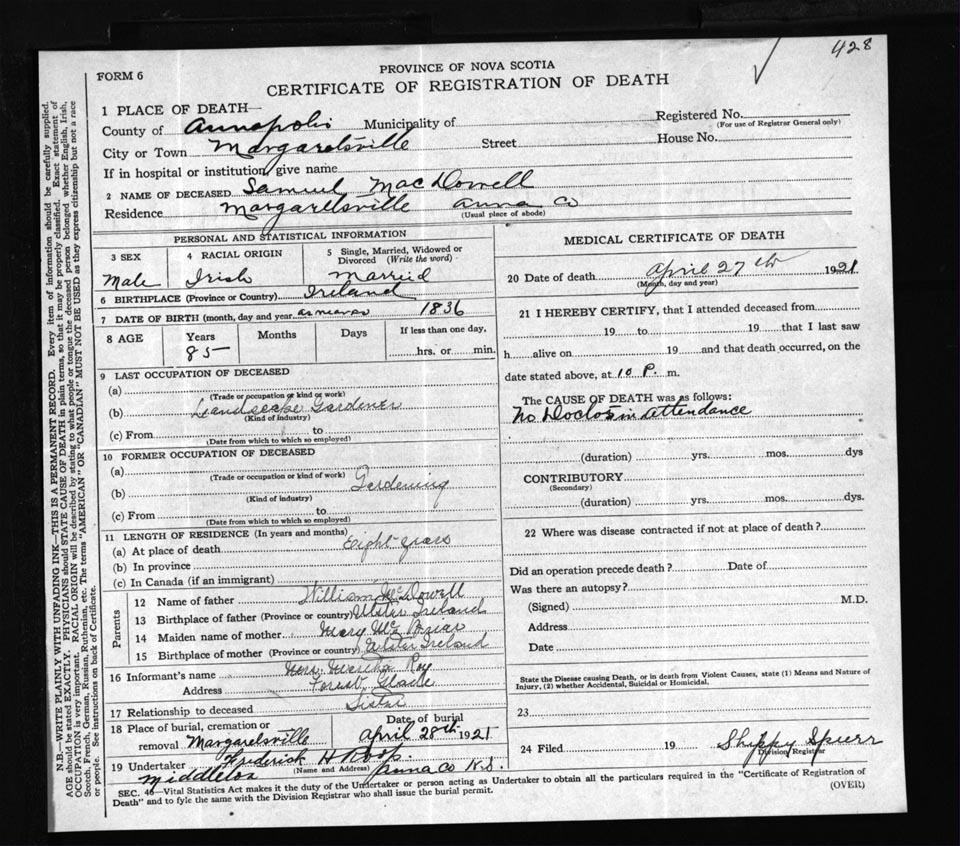 428
FORM 6
PROVINCE OF NOVA SCOTIA
CERTIFICATE OF REGISTRATION OF DEATH
1 PLACE OF DEATH—
County of Annapolis Municipality of
Registered No.
(For use of Registrar General only)
City or Town Margaretsville Street House No.
If in hospital or institution, give name
2 NAME OF DECEASED Samuel MacDowell
Residence Margaretsville Anna Co
(Usual place of abode)
PERSONAL AND STATISTICAL INFORMATION
3 SEX
Male
4 RACIAL ORIGIN
Irish
5 Single, Married, Widowed or Divorced (Write the word)
Married
6 BIRTHPLACE (Province or Country) Ireland
7 DATE OF BIRTH (month, day and year 1836
8 AGE
Years
85
Months
Days
If less than one day,
hrs. or min.
9 LAST OCCUPATION OF DECEASED
(a)
(Trade or occupation or kind or work)
(b) Landscape Gardener
(Kind of industry)
(c) From to
(Date from which to which so employed)
10 FORMER OCCUPATION OF DECEASED
(a)
(Trade or occupation or kind of work)
(b) Gardening
(Kind of industry)
(c) From to
(Date from which to which so employed)
11 LENGTH OF RESIDENCE (In years and months)
(a) At place of death Eight years
(b) In province
(c) In Canada (if an immigrant)
Parents
12 Name of father William McDowell
13 Birthplace of father (Province or country) Ulster Ireland
14 Maiden name of mother Mary Mc
15 Birthplace of mother (Province or country) Ulster Ireland
16 Informant's name Roy
Address Forest Glade
17 Relationship to deceased Sister
18 Place of burial, cremation or removal Margaretsville
Date of burial
April 28th 1921
19 Undertaker Frederick H Roop
(Name and Address)
Middleton Anna Co N.S.
MEDICAL CERTIFICATE OF DEATH
20 Date of death April 27th 1921
(Month, day and year)
21 I HEREBY CERTIFY, that I attended deceased from
19 to 19 that I last saw
h alive on 19 and that death occurred, on the
date stated above, at 10 P. m.
The CAUSE OF DEATH was as follows:
No Doctor in attendance
(duration) yrs. mos. dys
CONTRIBUTORY
(Secondary)
(duration) yrs. mos. dys.
22 Where was disease contracted if not at place of death?
Did an operation precede death? Date of
Was there an autopsy?
(Signed) M.D.
Address
Date
State the Disease causing Death, or in death from Violent Causes, state (1) Means and Nature of
Injury, (2) whether Accidental, Suicidal or Homicidal.
23
24 Filed 19 Shippy Spurr
Division Registrar
SEC. 46—Vital Statistics Act makes it the duty of the Undertaker or person acting as Undertaker to obtain all the particulars required in the "Certificate of Registration of
Death" and to fyle the same with the Division Registrar who shall issue the burial permit.
(OVER)
N.B.—WRITE PLAINLY WITH UNFADING INK—THIS IS A PERMANENT RECORD. Every item of information should be carefully supplied.
AGE should be stated EXACTLY. PHYSICIANS should STATE CAUSE OF DEATH in plain terms, so that it may be properly classified. Exact statement of
OCCUPATION is very important. RACIAL ORIGIN will be described by stating to what people or tongue the deceased person belonged whether English, Irish,
Scotch, French, German, Russian, Ruthenian, etc. The terms "AMERICAN" OR "CANADIAN" MUST NOT BE USED as they express citizenship but not a race
or people. See instructions on back of Certificate.